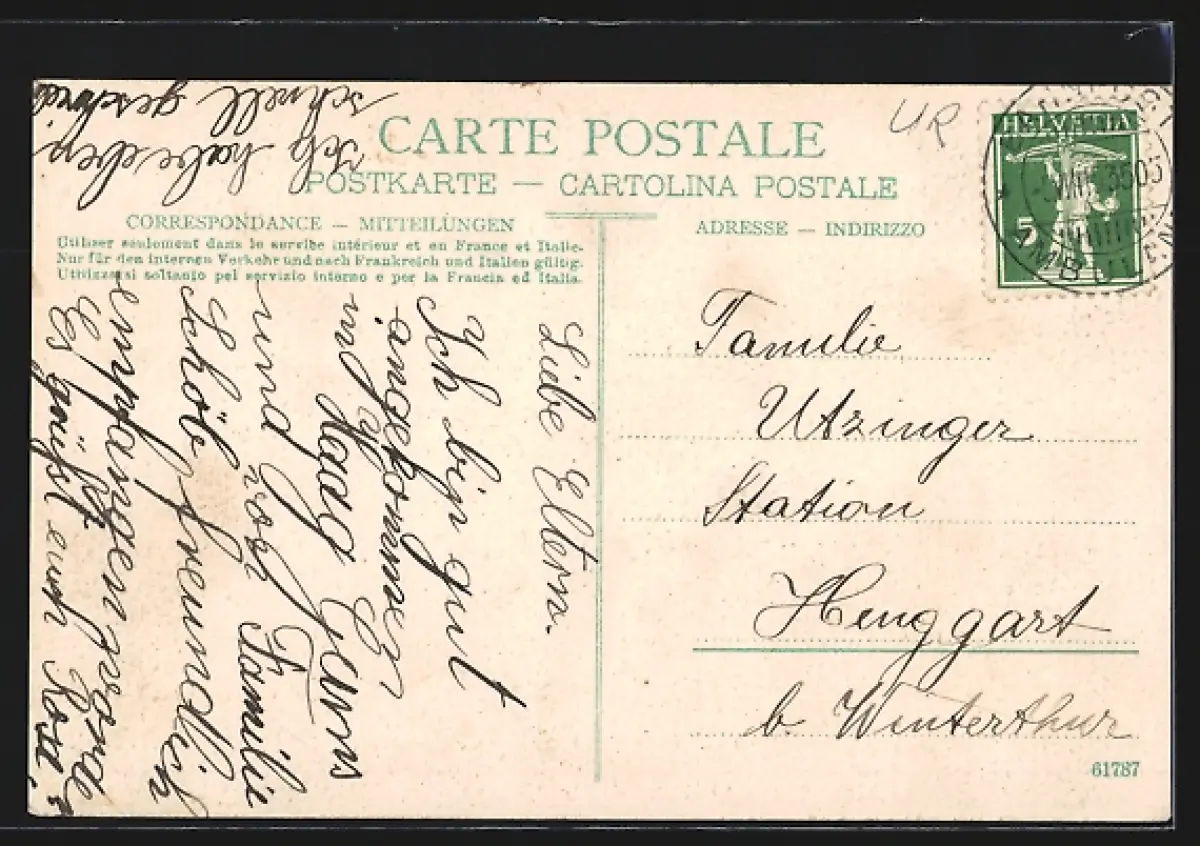 CARTE POSTALE
POSTKARTE — CARTOLINA POSTALE
CORRESPONDANCE — MITTEILUNGEN
Utiliser seulement dans le service intérieur et en France et Italie.
Nur für den internen Verkehr und nach Frankreich und Italien gültig.
Utilizzasi soltanto pel servizio interno e per la Francia ed Italia.
ADRESSE — INDIRIZZO
UR
HELVETIA
5
Liebe Eltern.
Ich bin gut
angekommen
in
und von Familie
Schöb freundlich
empfangen worden
Es grüßt euch Rosa.
Ich habe eben
schnell
Familie
Utzinger
Station
Henggart
b. Winterthur
61787